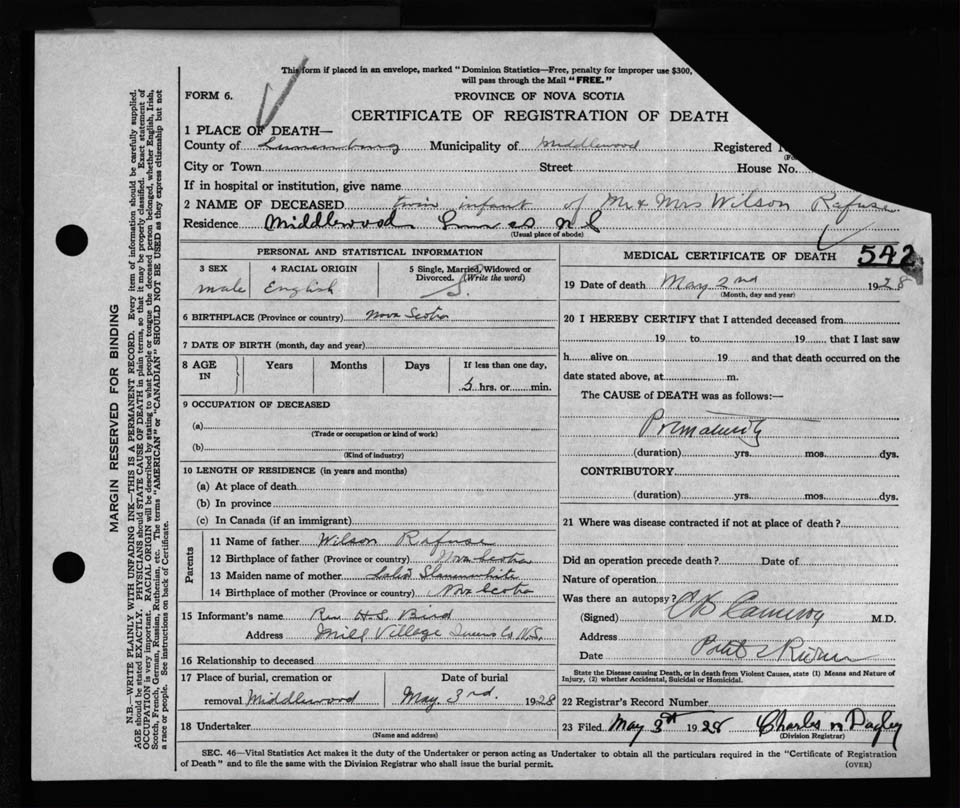 This form if placed in an envelope, marked "Dominion Statistics—Free, penalty for improper use $300,
will pass through the Mail "FREE."
FORM 6.
PROVINCE OF NOVA SCOTIA
CERTIFICATE OF REGISTRATION OF DEATH
1 PLACE OF DEATH—
County of Lunenburg Municipality of Middlewood Registered
City or Town Street House No.
If in hospital or institution, give name
2 NAME OF DECEASED twin infant of Mr & Mrs Wilson Rafuse
Residence Middlewood Lun Co N S
(Usual place of abode)
542
PERSONAL AND STATISTICAL INFORMATION
3 SEX
male
4 RACIAL ORIGIN
English
5 Single, Married, Widowed or
Divorced. (Write the word)
S.
6 BIRTHPLACE (Province or country) Nova Scotia
7 DATE OF BIRTH (month, day and year)
8 AGE
IN
Years Months Days If less than one day,
5 hrs. or min.
9 OCCUPATION OF DECEASED
(a)
(Trade or occupation or kind of work)
(b)
(Kind of industry)
10 LENGTH OF RESIDENCE (in years and months)
(a) At place of death
(b) In province
(c) In Canada (if an immigrant)
Parents
11 Name of father Wilson Rafuse
12 Birthplace of father (Province or country) Nova Scotia
13 Maiden name of mother Slaunwhite
14 Birthplace of mother (Province or country) Nova Scotia
15 Informant's name Rev H.S. Bird
Address Mill Village Queens Co N.S.
16 Relationship to deceased
17 Place of burial, cremation or
removal Middlewood
Date of burial
May 3rd. 1928
18 Undertaker
(Name and address)
MEDICAL CERTIFICATE OF DEATH
19 Date of death May 2nd 1928
(Month, day and year)
20 I HEREBY CERTIFY that I attended deceased from
19 to 19 that I last saw
h alive on 19 and that death occurred on the
date stated above, at m.
The CAUSE of DEATH was as follows:—
Prematurity
(duration) yrs. mos. dys.
CONTRIBUTORY
(duration) yrs. mos. dys.
21 Where was disease contracted if not at place of death?
Did an operation precede death? Date of
Nature of operation
Was there an autopsy?
(Signed) Cameron M.D.
Address
Date
State the Disease causing Death, or in death from Violent Causes, state (1) Means and Nature of
Injury, (2) whether Accidental, Suicidal or Homicidal.
22 Registrar's Record Number
23 Filed May 3rd 1928 Charles N Dagley
(Division Registrar)
SEC. 46—Vital Statistics Act makes it the duty of the Undertaker or person acting as Undertaker to obtain all the particulars required in the "Certificate of Registration
of Death" and to file the same with the Division Registrar who shall issue the burial permit.
(OVER)
MARGIN RESERVED FOR BINDING
N.B.—WRITE PLAINLY WITH UNFADING INK—THIS IS A PERMANENT RECORD. Every item of information should be carefully supplied.
AGE should be stated EXACTLY. PHYSICIANS should STATE CAUSE OF DEATH in plain terms, so that it may be properly classified. Exact statement of
OCCUPATION is very important. RACIAL ORIGIN will be described by stating to what people or tongue the deceased person belonged, whether English, Irish,
Scotch, French, German, Russian, Ruthenian, etc. The terms "AMERICAN" or "CANADIAN" SHOULD NOT BE USED as they express citizenship but not
a race or people. See instructions on back of Certificate.